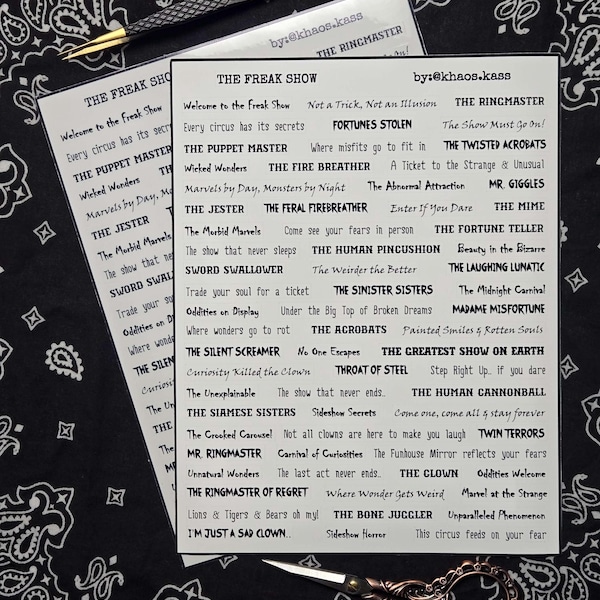 THE FREAK SHOW by:@khaos.kass
Welcome to the Freak Show Not a Trick, Not an Illusion THE RINGMASTER
Every circus has its secrets FORTUNES STOLEN The Show Must Go On!
THE PUPPET MASTER Where misfits go to fit in THE TWISTED ACROBATS
Wicked Wonders THE FIRE BREATHER A Ticket to the Strange & Unusual
Marvels by Day, Monsters by Night The Abnormal Attraction MR. GIGGLES
THE JESTER THE FERAL FIREBREATHER Enter If You Dare THE MIME
The Morbid Marvels Come see your fears in person THE FORTUNE TELLER
The show that never sleeps THE HUMAN PINCUSHION Beauty in the Bizarre
SWORD SWALLOWER The Weirder the Better THE LAUGHING LUNATIC
Trade your soul for a ticket THE SINISTER SISTERS The Midnight Carnival
Oddities on Display Under the Big Top of Broken Dreams MADAME MISFORTUNE
Where wonders go to rot THE ACROBATS Painted Smiles & Rotten Souls
THE SILENT SCREAMER No One Escapes THE GREATEST SHOW ON EARTH
Curiosity Killed the Clown THROAT OF STEEL Step Right Up.. if you dare
The Unexplainable The show that never ends.. THE HUMAN CANNONBALL
THE SIAMESE SISTERS Sideshow Secrets Come one, come all & stay forever
The Crooked Carousel Not all clowns are here to make you laugh TWIN TERRORS
MR. RINGMASTER Carnival of Curiosities The Funhouse Mirror reflects your fears
Unnatural Wonders The last act never ends.. THE CLOWN Oddities Welcome
THE RINGMASTER OF REGRET Where Wonder Gets Weird Marvel at the Strange
Lions & Tigers & Bears oh my! THE BONE JUGGLER Unparalleled Phenomenon
I'M JUST A SAD CLOWN.. Sideshow Horror This circus feeds on your fear
THE FREAK SHO by:@khaos.kass
Welcome to the Freak Show THE RINGMASTER
Every circus has its On!
THE PUPPET MASTER
Wicked Wonders
Marvels by Day, Mon
THE JESTER
The Morbid Marvels
The show that never
SWORD SWALLOW
Trade your soul
Oddities on Di
Where wonde
THE SILEN
Curiosity
The Un
THE
The
MR.